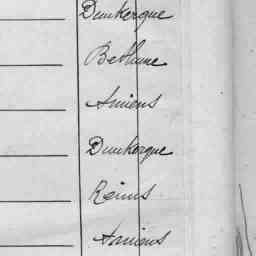 Dunkerque
Bethune
Amiens
Dunkerque
Reims
Amiens